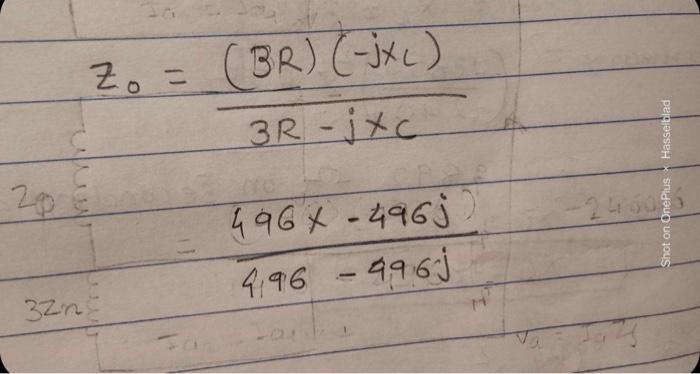 Z₀ = (3R) (-jXc)
3R - jXc
= (496 x - 496j)
496 - 496j
2φ
3Zn
Shot on OnePlus × Hasselblad